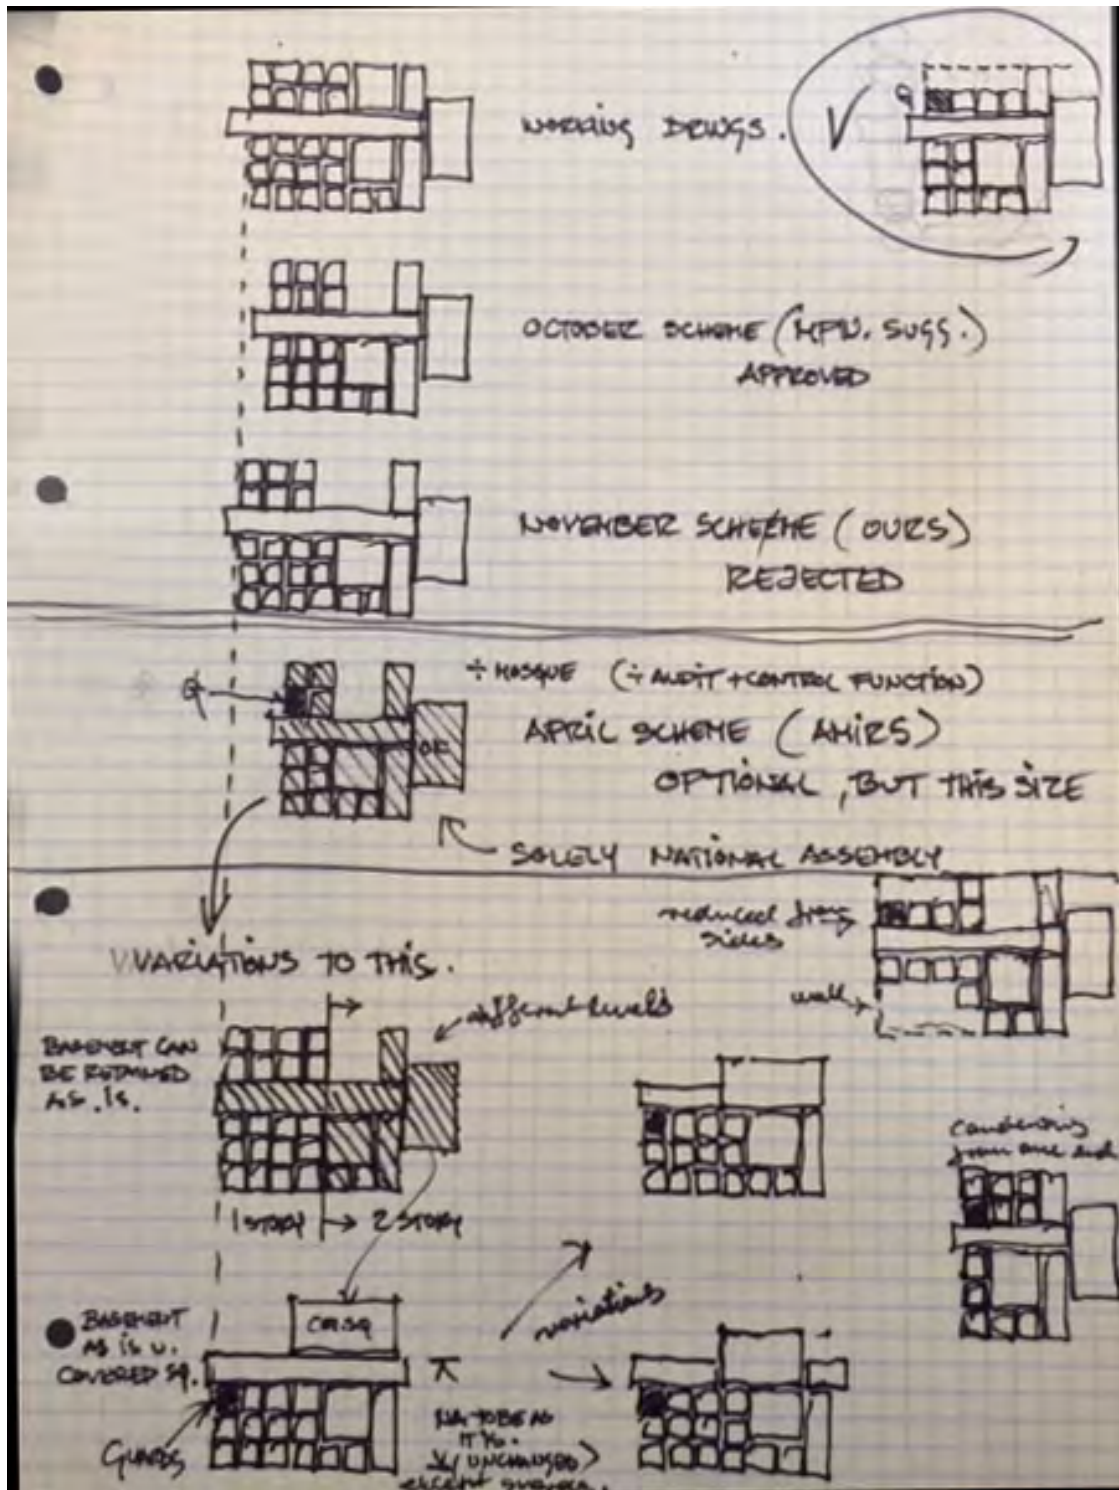 WORKING DRWGS.
OCTOBER SCHEME (MPW. SUGG.)
APPROVED
NOVEMBER SCHEME (OURS)
REJECTED
G
÷ MOSQUE (÷ AUDIT + CONTROL FUNCTION)
APRIL SCHEME (AMIRS)
OK
OPTIONAL, BUT THIS SIZE
SOLELY NATIONAL ASSEMBLY
reduced from
sides
VARIATIONS TO THIS.
wall
different levels
BASEMENT CAN
BE RETAINED
AS IS.
condensing
from one end
1 STORY
2 STORY
BASEMENT
AS IS U.
COVERED SQ.
COV. SQ
variations
GUARDS
NA. TO BE AS
IT IS.
UNCHANGED)
except